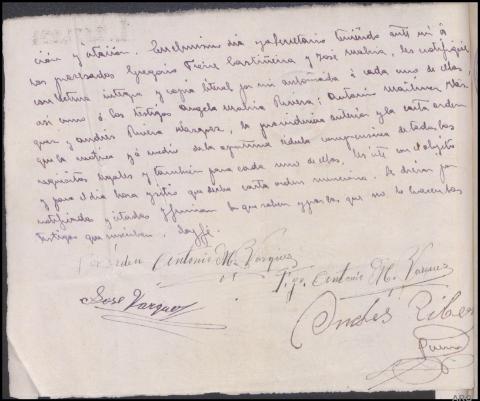 ción y citación. En el mismo dia yo Secretario teniendo ante mi á
los procesados Gregorio Freire Cartiñeira y José Malvia, les notifiqué
con lectura integra y copia literal por mi autorizada á cada uno de ellos
asi como á los testigos Angela Malvia Rivera; Antonio Martinez Váz-
quez y Andrés Rivera Vazquez, la providencia anterior y la carta orden
que la motiva y á medio de la oportuna cédula comprensiva de todos los
requisitos legales y tambien para cada uno de ellos, les cité con el objeto
y para el dia hora y sitio que dicha carta orden menciona. Se dieron por
notificados y citados y firman lo que saben y por los que no lo hacen los
testigos que suscriben. Doy fé.
Antonio M. Vazquez
Tgo. Antonio M. Vazquez
José Vazquez
Andrés Riber